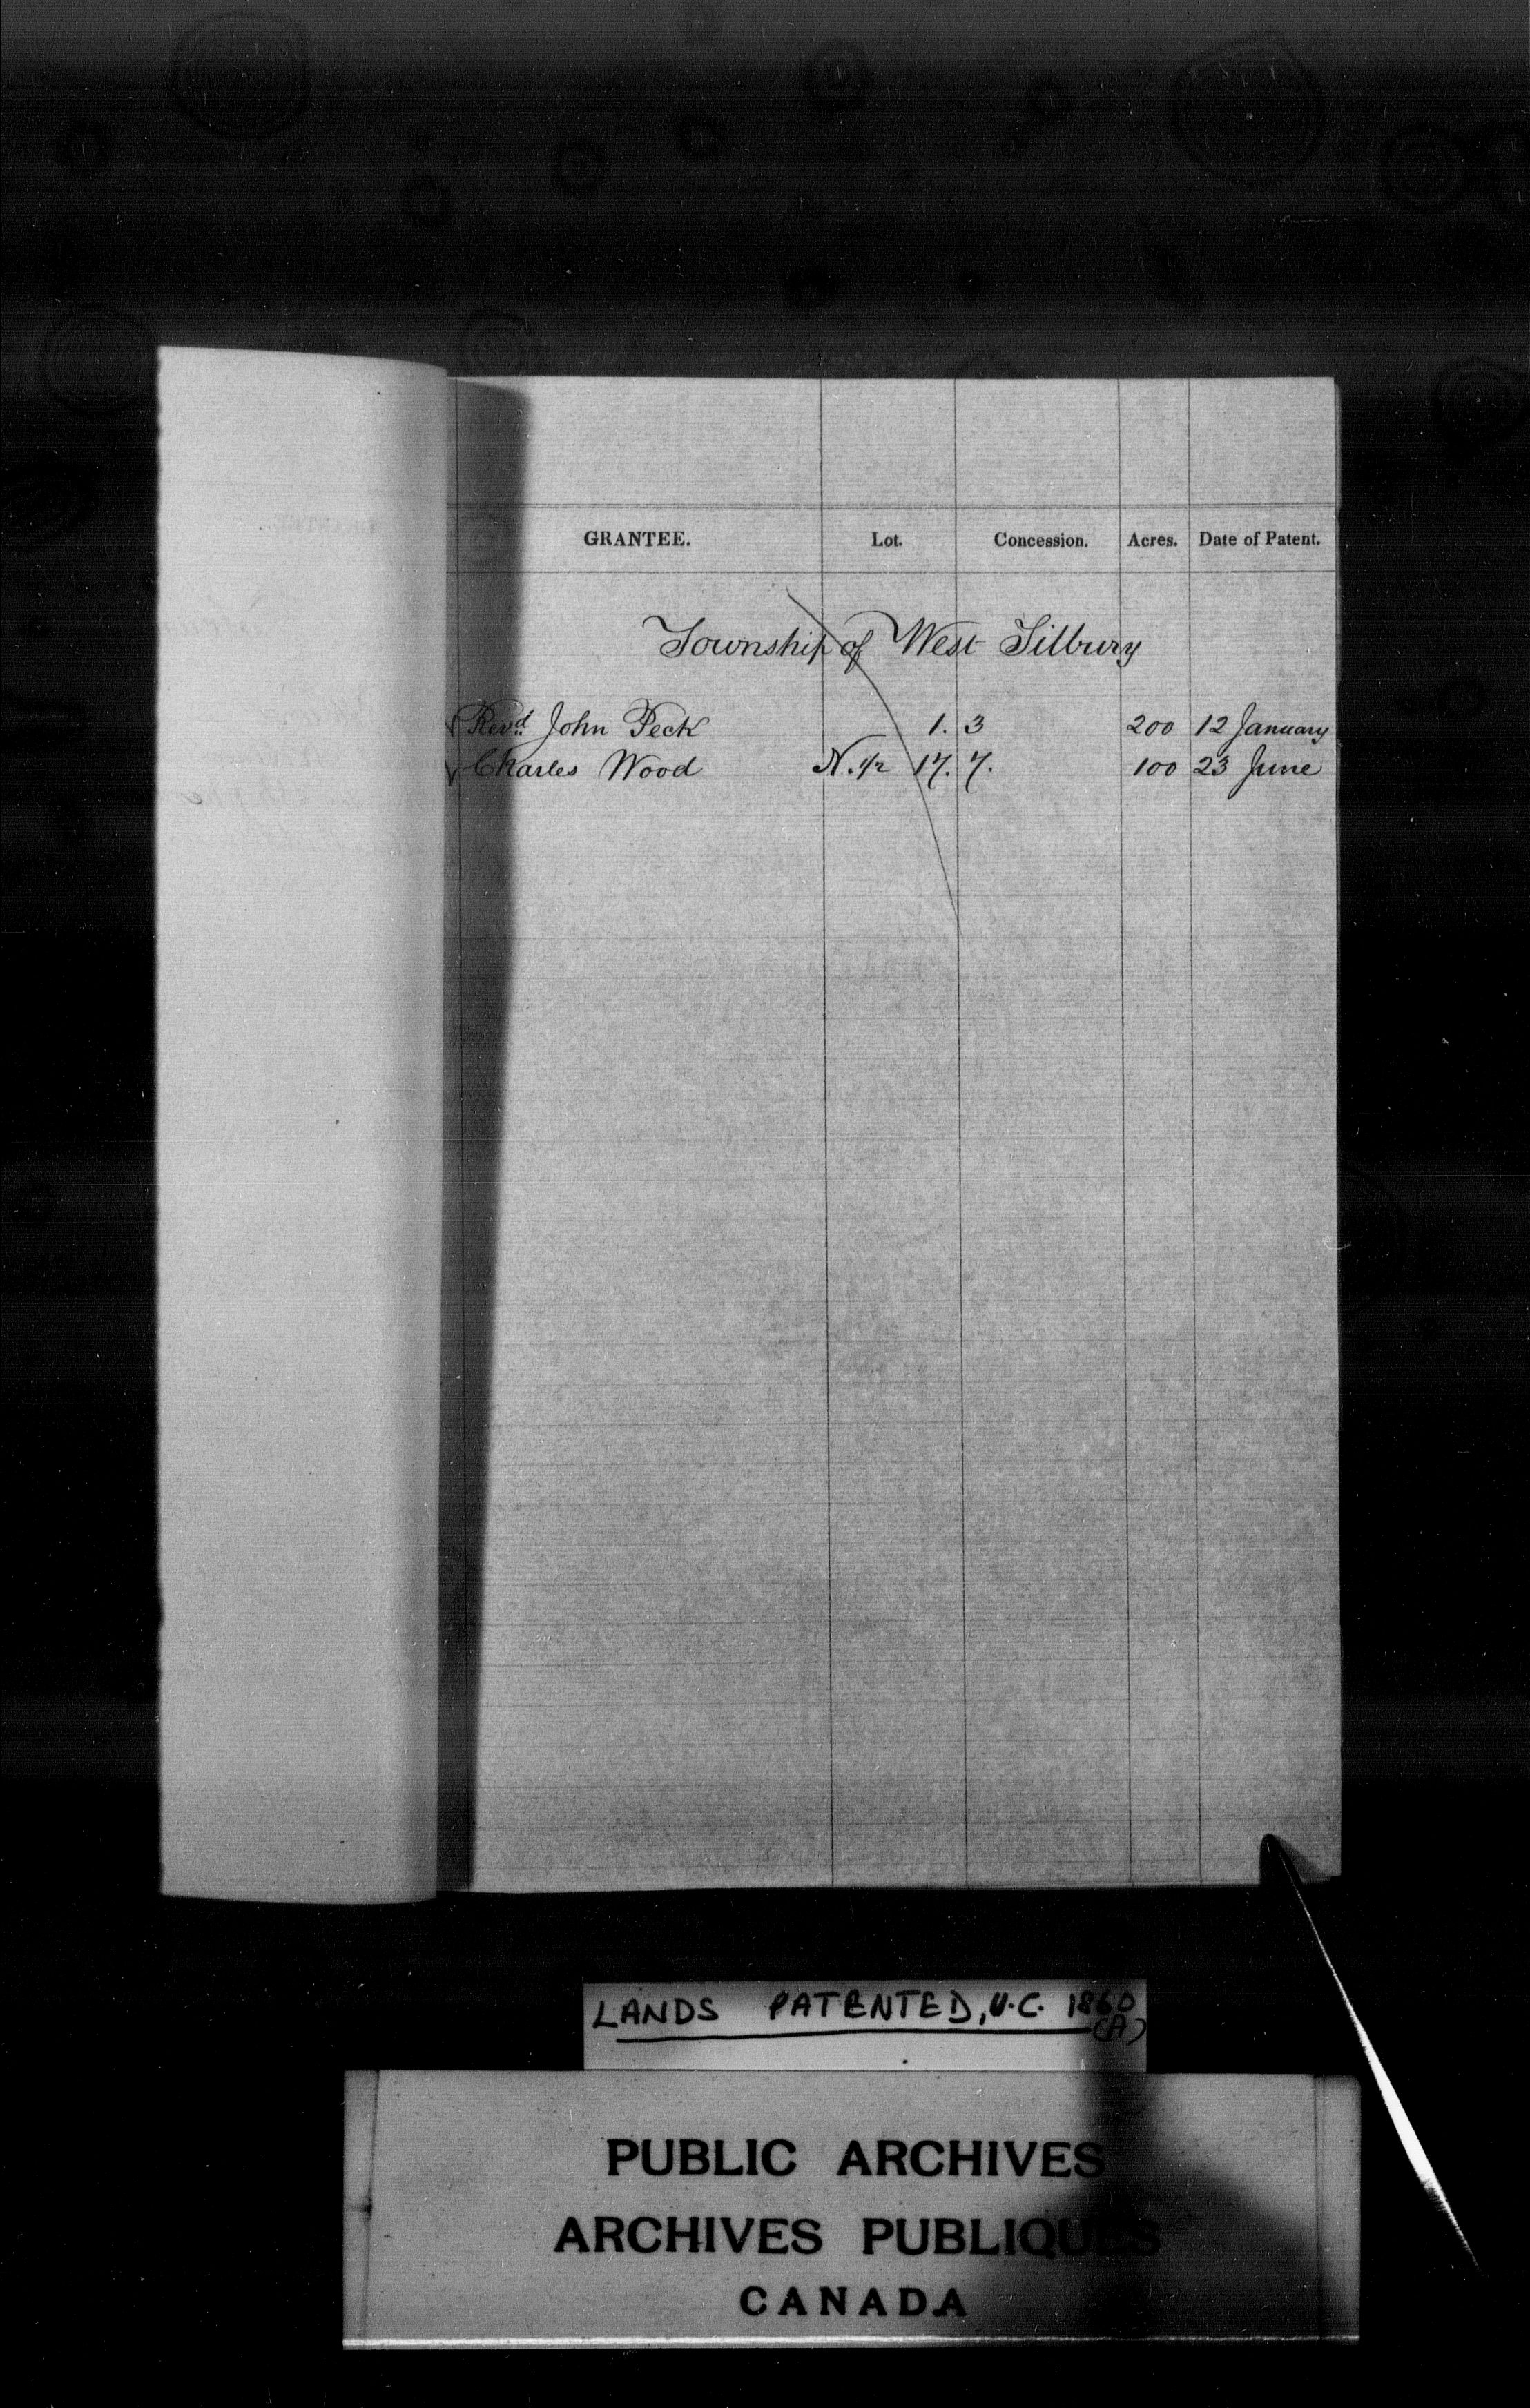 GRANTEE. Lot. Concession. Acres. Date of Patent.
Township of West Tilbury
Revd. John Peck 1. 3 200 12 January
Charles Wood N. 1/2 17. 7. 100 23 June
LANDS PATENTED, U.C. 1860
(A)
PUBLIC ARCHIVES
ARCHIVES PUBLIQUES
CANADA